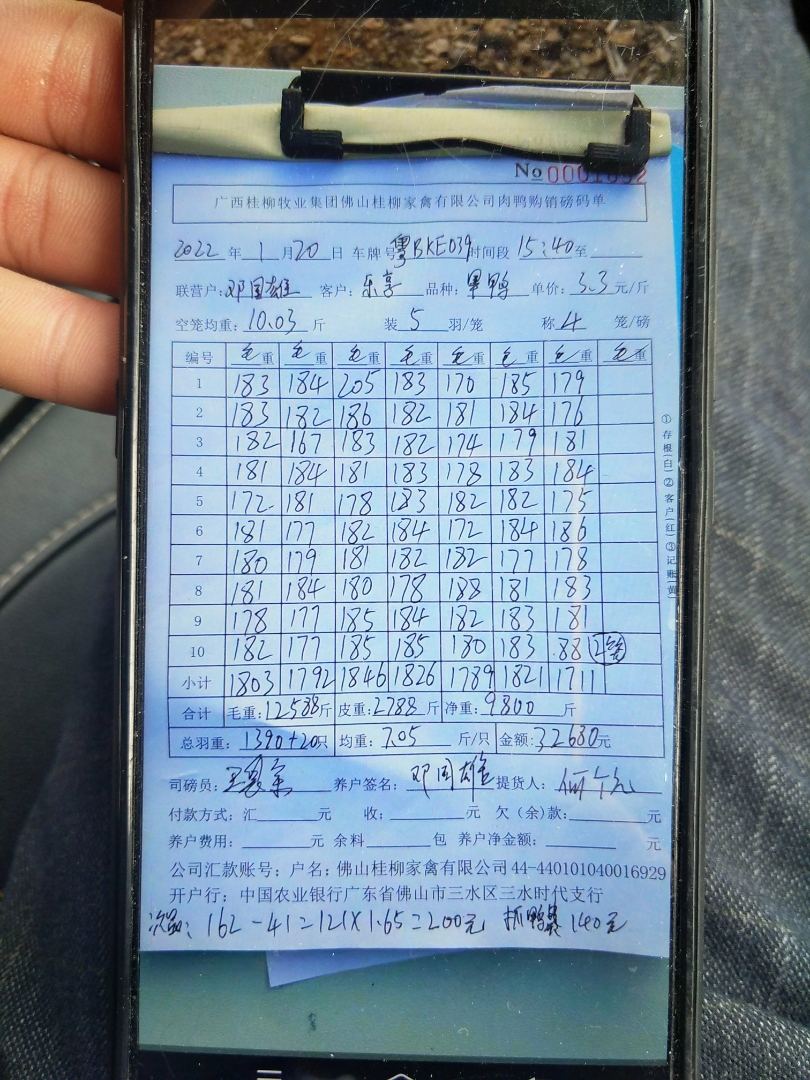 No 0001692
广西桂柳牧业集团佛山桂柳家禽有限公司肉鸭购销磅码单
2022 年 1 月 20 日 车牌号 粤BKE039 时间段 15:40 至
联营户: 邓国雄 客户: 乐享 品种: 单价: 3.3 元/斤
空笼均重: 10.03 斤 装 5 羽/笼 称 4 笼/磅
编号 毛重 毛重 毛重 毛重 毛重 毛重 毛重 毛重
1 183 184 205 183 170 185 179
2 183 182 186 182 181 184 176
3 182 167 183 182 174 179 181
4 181 184 181 183 178 183 184
5 172 181 178 183 182 182 175
6 181 177 182 184 172 184 186
7 180 179 181 182 182 177 178
8 181 184 180 178 188 181 183
9 178 177 185 184 182 183 181
10 182 177 185 185 180 183 88
小计 1803 1792 1846 1826 1789 1821 1711
合计 毛重: 12588 斤 皮重: 2788 斤 净重: 9800 斤
总羽重: 1390+20 只 均重: 7.05 斤/只 金额: 32680 元
司磅员: 养户签名: 邓国雄 提货人:
付款方式: 汇 元 收: 元 欠(余)款: 元
养户费用: 元 余料 包 养户净金额: 元
公司汇款账号: 户名: 佛山桂柳家禽有限公司 44-440101040016929
开户行: 中国农业银行广东省佛山市三水区三水时代支行
次品: 162-41=121×1.65=200元 抓鸭 140元
①存根(白)②客户(红)③记账(黄)